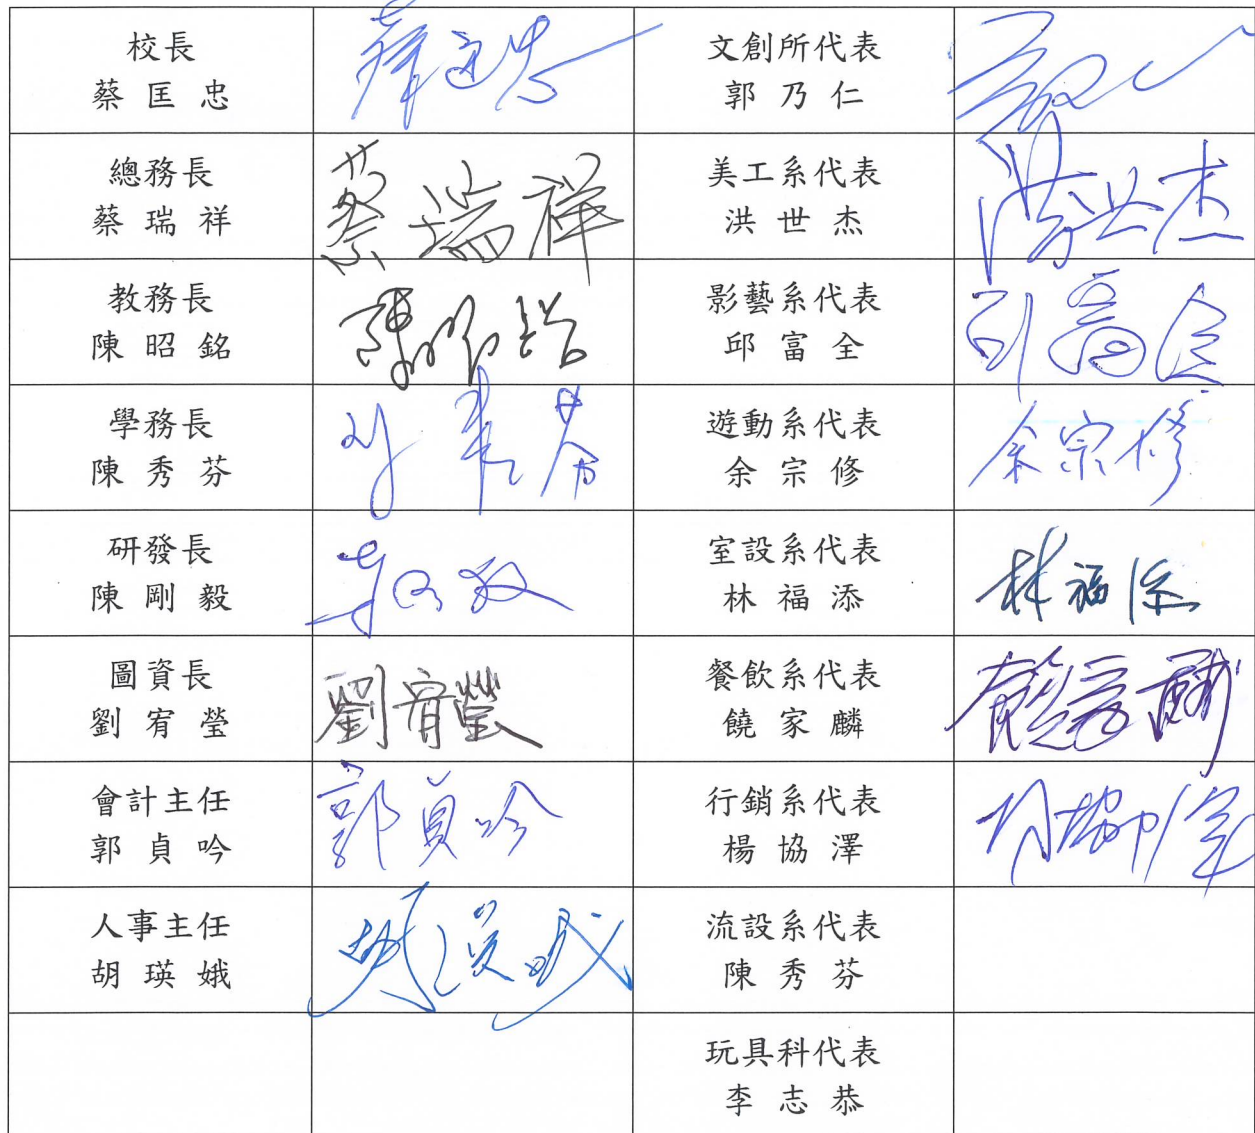 校長
蔡匡忠
文創所代表
郭乃仁
總務長
蔡瑞祥
蔡瑞祥
美工系代表
洪世杰
洪世杰
教務長
陳昭銘
陳昭銘
影藝系代表
邱富全
邱富全
學務長
陳秀芬
遊動系代表
余宗修
余宗修
研發長
陳剛毅
室設系代表
林福添
林福添
圖資長
劉宥瑩
劉宥瑩
餐飲系代表
饒家麟
饒家麟
會計主任
郭貞吟
郭貞吟
行銷系代表
楊協澤
人事主任
胡瑛娥
流設系代表
陳秀芬
玩具科代表
李志恭